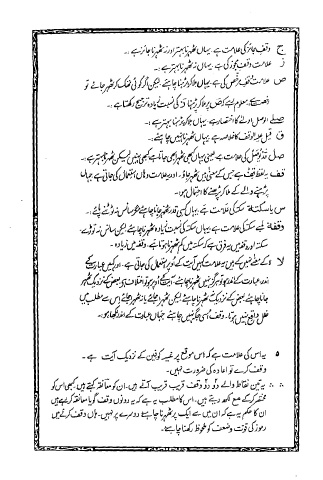 ج وقف جائز کی علامت ہے۔ یہاں ٹھہرنا بہتر اور نہ ٹھہرنا جائز ہے۔
ز علامت وقف مجوز کی ہے۔ یہاں نہ ٹھہرنا بہتر ہے۔
ص علامت وقف مرخص کی ہے۔ یہاں ملا کر پڑھنا چاہئے لیکن اگر کوئی تھک کر ٹھہر جائے تو
رخصت ہے۔ معلوم رہے کہ ص پر ملا کر پڑھنا ز کی نسبت زیادہ ترجیح رکھتا ہے۔
صلے الوصل اولیٰ کا اختصار ہے۔ یہاں ملا کر پڑھنا بہتر ہے۔
ق قیل علیہ الوقف کا خلاصہ ہے۔ یہاں ٹھہرنا نہیں چاہئے۔
صل قد یوصل کی علامت ہے۔ یعنی یہاں کبھی ٹھہرا بھی جاتا ہے کبھی نہیں لیکن ٹھہرنا بہتر ہے۔
قف یہ لفظ قف ہے جس کے معنی ہیں ٹھہر جاؤ۔ اور یہ علامت وہاں استعمال کی جاتی ہے جہاں
پڑھنے والے کے ملا کر پڑھنے کا احتمال ہو۔
س یا سکتة سکتہ کی علامت ہے یہاں کسی قدر ٹھہر جانا چاہئے مگر سانس نہ ٹوٹنے پائے۔
وقفة لمبے سکتہ کی علامت ہے۔ یہاں سکتہ کی نسبت زیادہ ٹھہرنا چاہئے لیکن سانس نہ توڑے۔
سکتہ اور وقفہ میں یہ فرق ہے کہ سکتہ میں کم ٹھہرنا ہوتا ہے وقفہ میں زیادہ۔
لا لا کے معنی نہیں کے ہیں۔ یہ علامت کہیں آیت کے اوپر استعمال کی جاتی ہے۔ اور کہیں عبارت کے
اندر۔ عبارت کے اندر ہو تو ہرگز نہیں ٹھہرنا چاہئے۔ آیت کے اوپر ہو تو اختلاف ہے بعض کے نزدیک ٹھہر
جانا چاہئے بعض کے نزدیک نہ ٹھہرنا چاہئے لیکن ٹھہرا جائے یا نہ ٹھہرا جائے اس سے مطلب میں
خلل واقع نہیں ہوتا۔ وقف اسی جگہ نہیں چاہئے جہاں عبارت کے اندر لکھا ہو۔
٥ یہ اس کی علامت ہے کہ اس موقع پر غیر کوفیین کے نزدیک آیت ہے۔
وقف کرے تو اعادہ کی ضرورت نہیں۔
∴ ∴ یہ تین نقاط والے دو وقف قریب قریب آتے ہیں۔ ان کو معانقہ کہتے ہیں کبھی اس کو
مختصر کر کے مع لکھ دیتے ہیں۔ اس کا مطلب یہ ہے کہ یہ دونوں وقف گویا معانقہ کر رہے ہیں
ان کا حکم یہ ہے کہ ان میں سے ایک پر ٹھہرنا چاہئے دوسرے پر نہیں۔ ہاں وقف کرنے میں
رموز کی قوت و ضعف کو ملحوظ رکھنا چاہئے۔